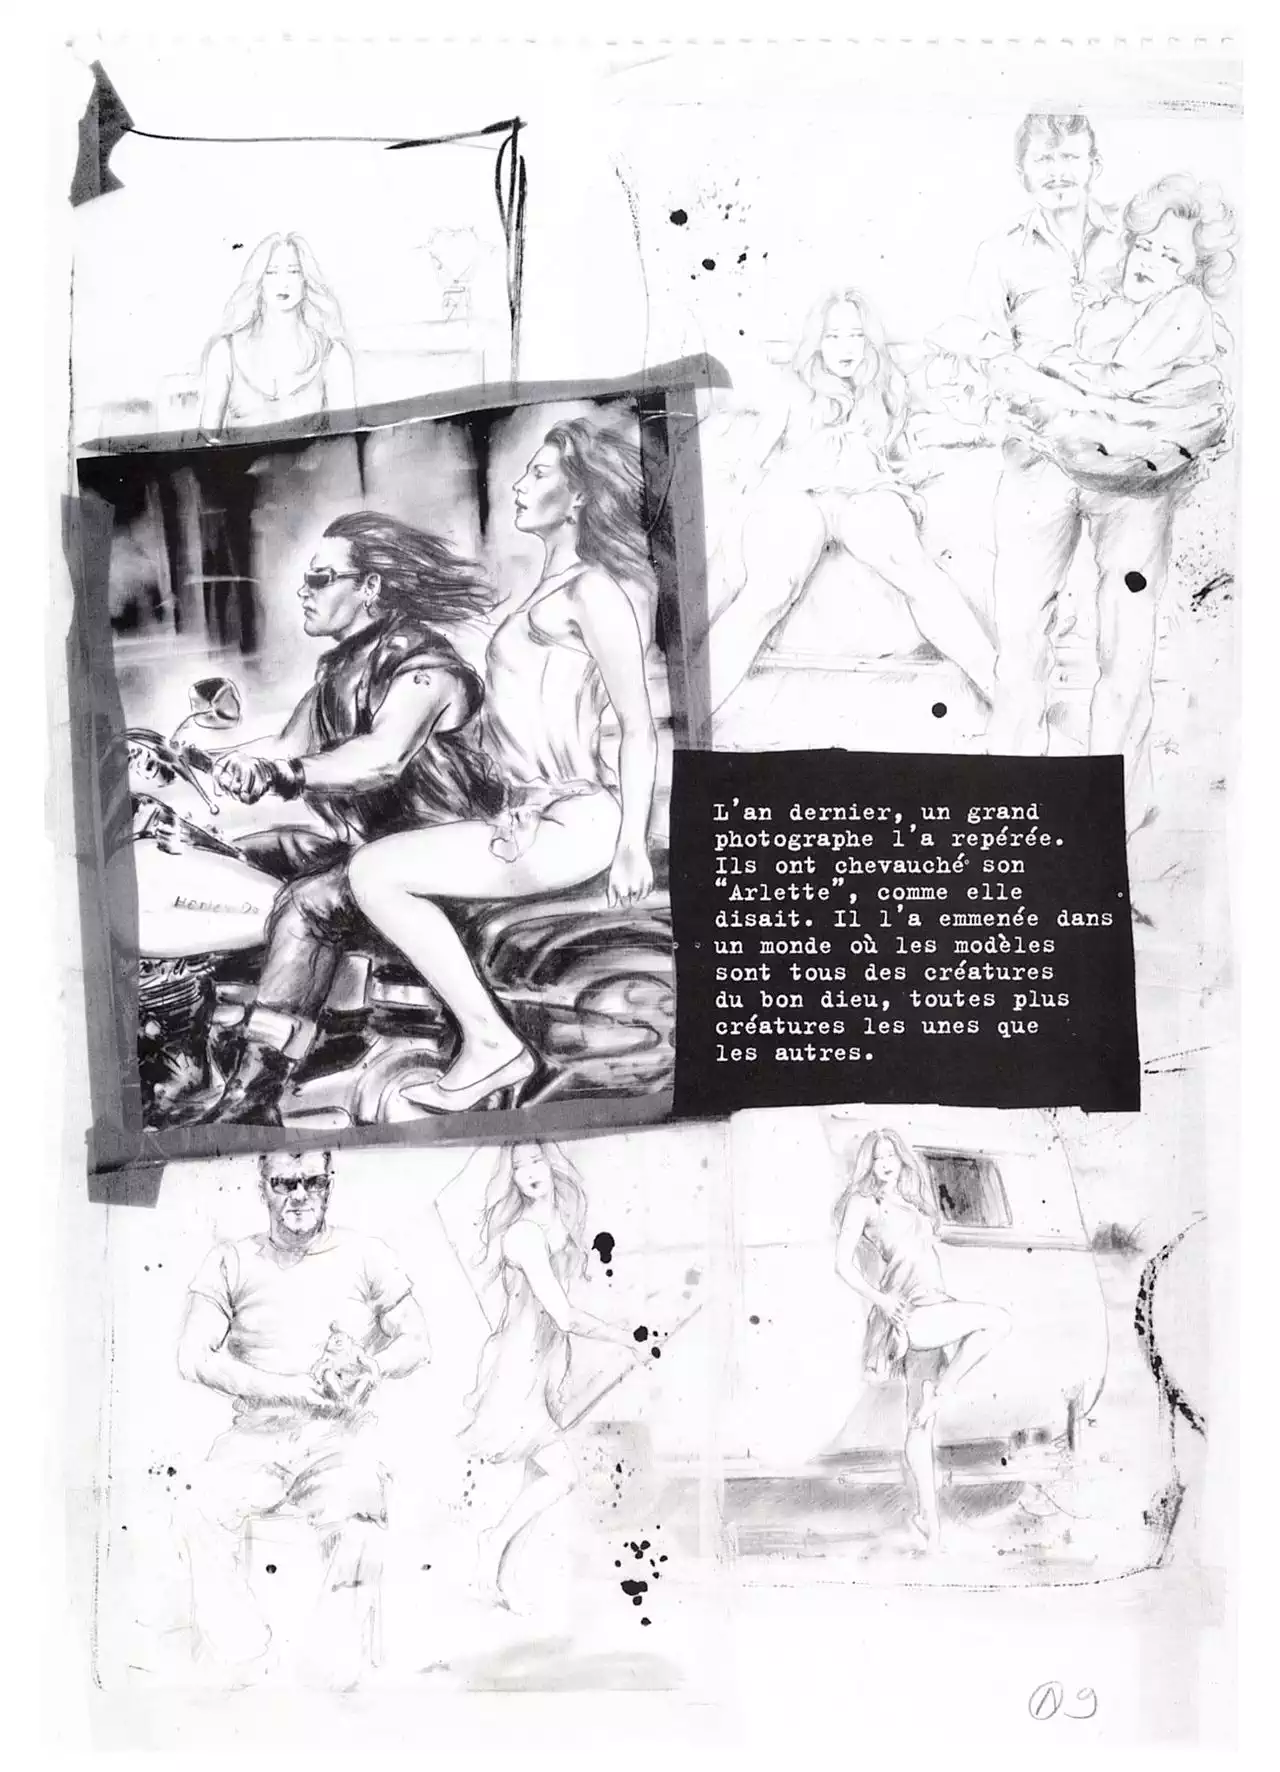 L'an dernier, un grand
photographe l'a repérée.
Ils ont chevauché son
"Arlette", comme elle
disait. Il l'a emmenée dans
un monde où les modèles
sont tous des créatures
du bon dieu, toutes plus
créatures les unes que
les autres.
Harley Da
19